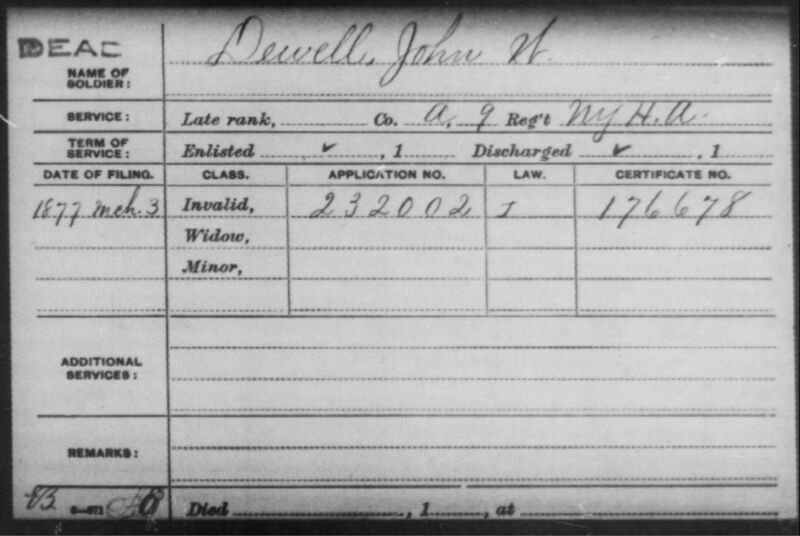 DEAD
Dewell, John W.
NAME OF SOLDIER:
SERVICE: Late rank, Co. A, 9 Reg't NY H.A.
TERM OF SERVICE: Enlisted ✓, 1 Discharged ✓, 1
DATE OF FILING. CLASS. APPLICATION NO. LAW. CERTIFICATE NO.
1877 Mch. 3 Invalid, 232002 I 176678
Widow,
Minor,
ADDITIONAL SERVICES:
REMARKS:
Died , 1 , at